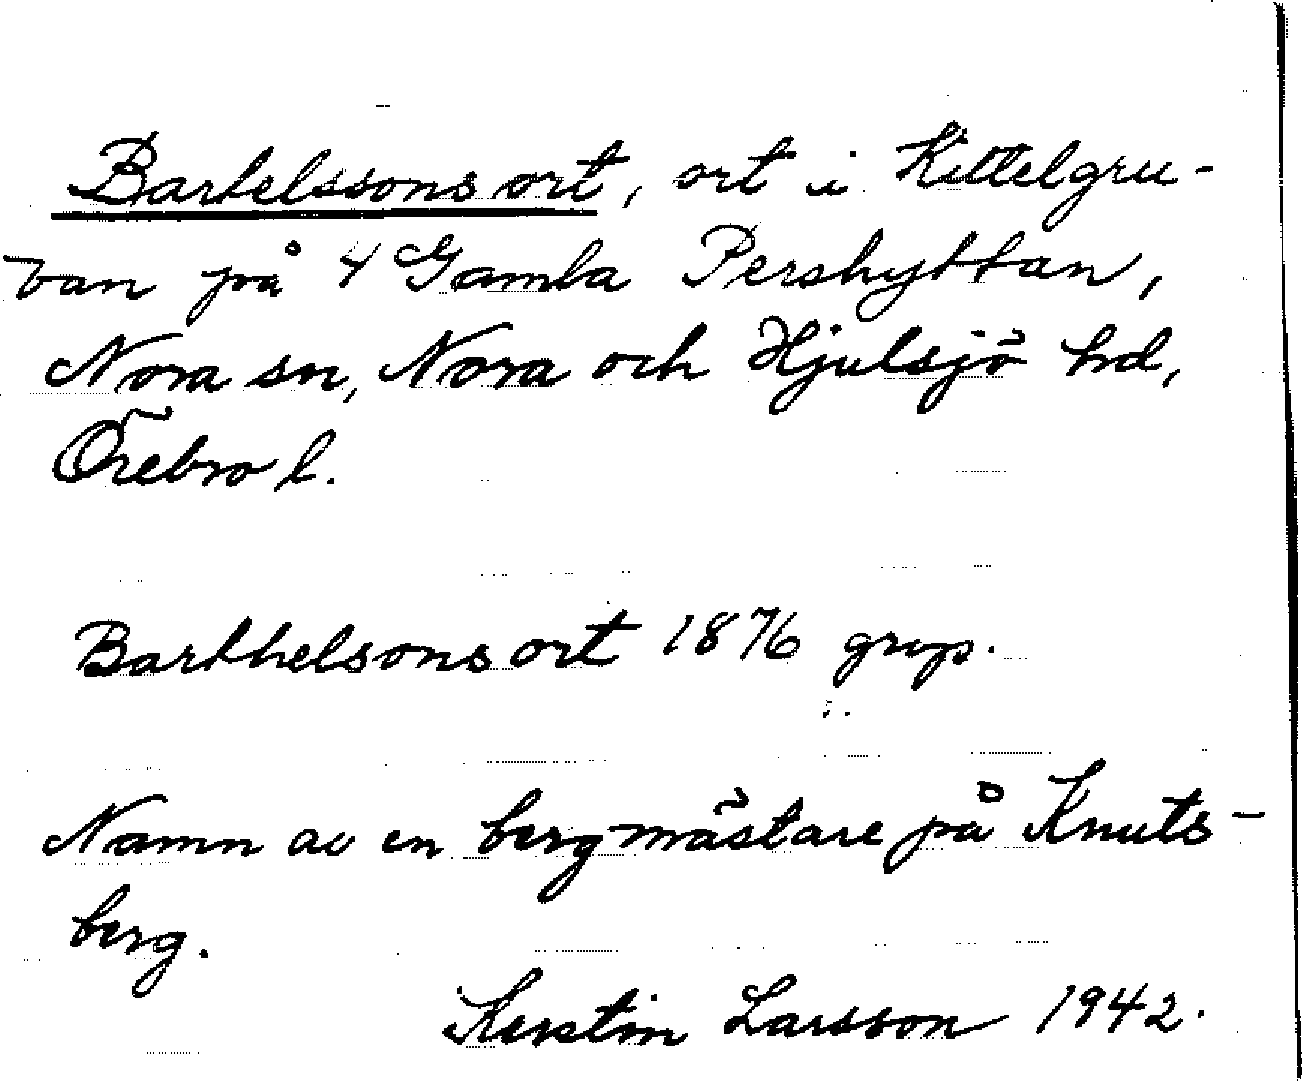 Bartelssons ort, ort i Kittelgru-
van på 4 Gamla Pershyttan,
Nora sn, Nora och Hjulsjö hd,
Örebro l.
Barthelsons ort 1876 grup.
Namn av en bergmästare på Knuts-
berg.
Kerstin Larsson 1942.